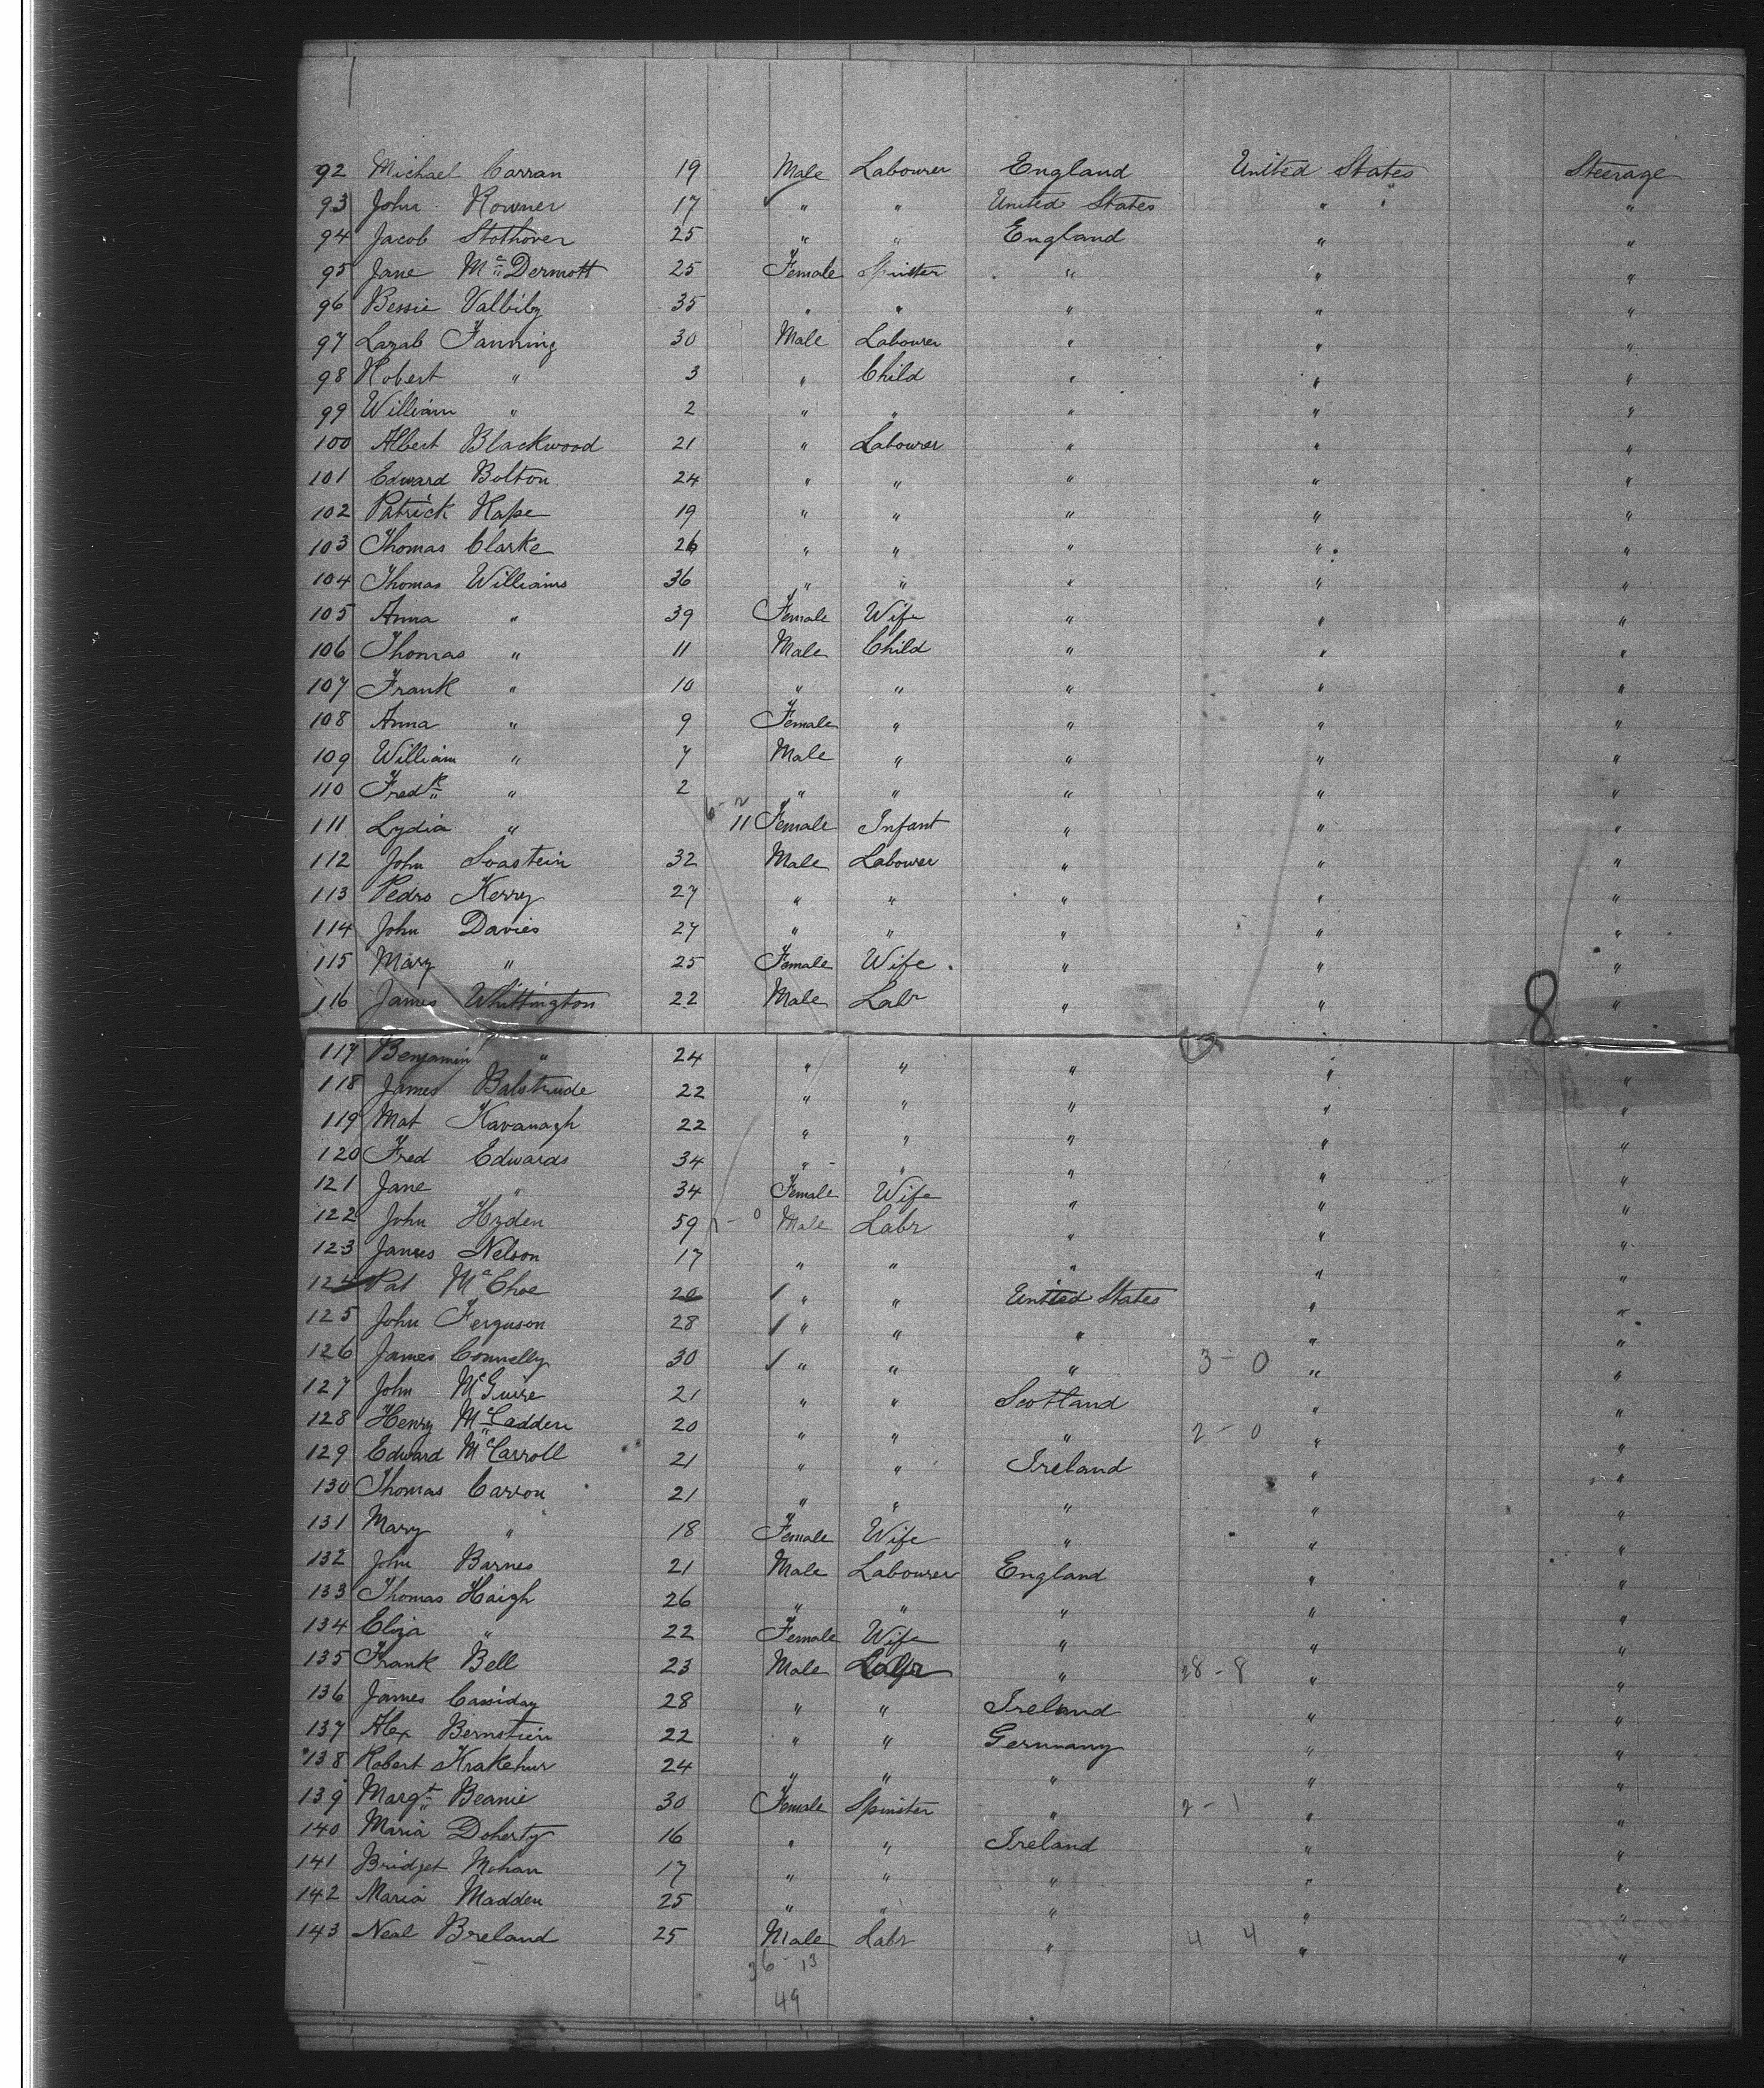 92 Michael Carran 19 Male Labourer England United States Steerage
93 John Rowner 17 " " United States " "
94 Jacob Stothover 25 " " England " "
95 Jane McDermott 25 Female Spinster " " "
96 Bessie Valbily 35 " " " " "
97 Lazab Fanning 30 Male Labourer " " "
98 Robert " 3 " Child " " "
99 William " 2 " " " " "
100 Albert Blackwood 21 " Labourer " " "
101 Edward Bolton 24 " " " " "
102 Patrick Hape 19 " " " " "
103 Thomas Clarke 26 " " " " "
104 Thomas Williams 36 " " " " "
105 Anna " 39 Female Wife " " "
106 Thomas " 11 Male Child " " "
107 Frank " 10 " " " " "
108 Anna " 9 Female " " " "
109 William " 7 Male " " " "
110 Fredk " 2 " " " " "
111 Lydia " 11 Female Infant " " "
112 John Soastein 32 Male Labourer " " "
113 Pedro Kerry 27 " " " " "
114 John Davies 27 " " " " "
115 Mary " 25 Female Wife " " "
116 James Whittington 22 Male Labr " " "
8
117 Benjamin " 24 " " " " "
118 James Balstrude 22 " " " " "
119 Mat Kavanagh 22 " " " " "
120 Fred Edwards 34 " " " " "
121 Jane " 34 Female Wife " " "
122 John Hyden 59 Male Labr " " "
123 James Nelson 17 " " " " "
124 Pat McChoe 20 " " United States " "
125 John Ferguson 28 " " " " "
126 James Connelly 30 " " " 3-0 " "
127 John McGuire 21 " " Scotland " "
128 Henry McCadden 20 " " " 2-0 " "
129 Edward McCarroll 21 " " Ireland " "
130 Thomas Carron 21 " " " " "
131 Mary " 18 Female Wife " " "
132 John Barnes 21 Male Labourer England " "
133 Thomas Haigh 26 " " " " "
134 Eliza " 22 Female Wife " " "
135 Frank Bell 23 Male Labr " 28-8 " "
136 James Cassiday 28 " " Ireland " "
137 Alex Bernstein 22 " " Germany " "
138 Robert Krakehur 24 " " " " "
139 Margt Beanie 30 Female Spinster " 2-1 " "
140 Maria Doherty 16 " " Ireland " "
141 Bridget Mohan 17 " " " " "
142 Maria Madden 25 " " " " "
143 Neal Breland 25 Male Labr " 4 4 " "
36-13
49